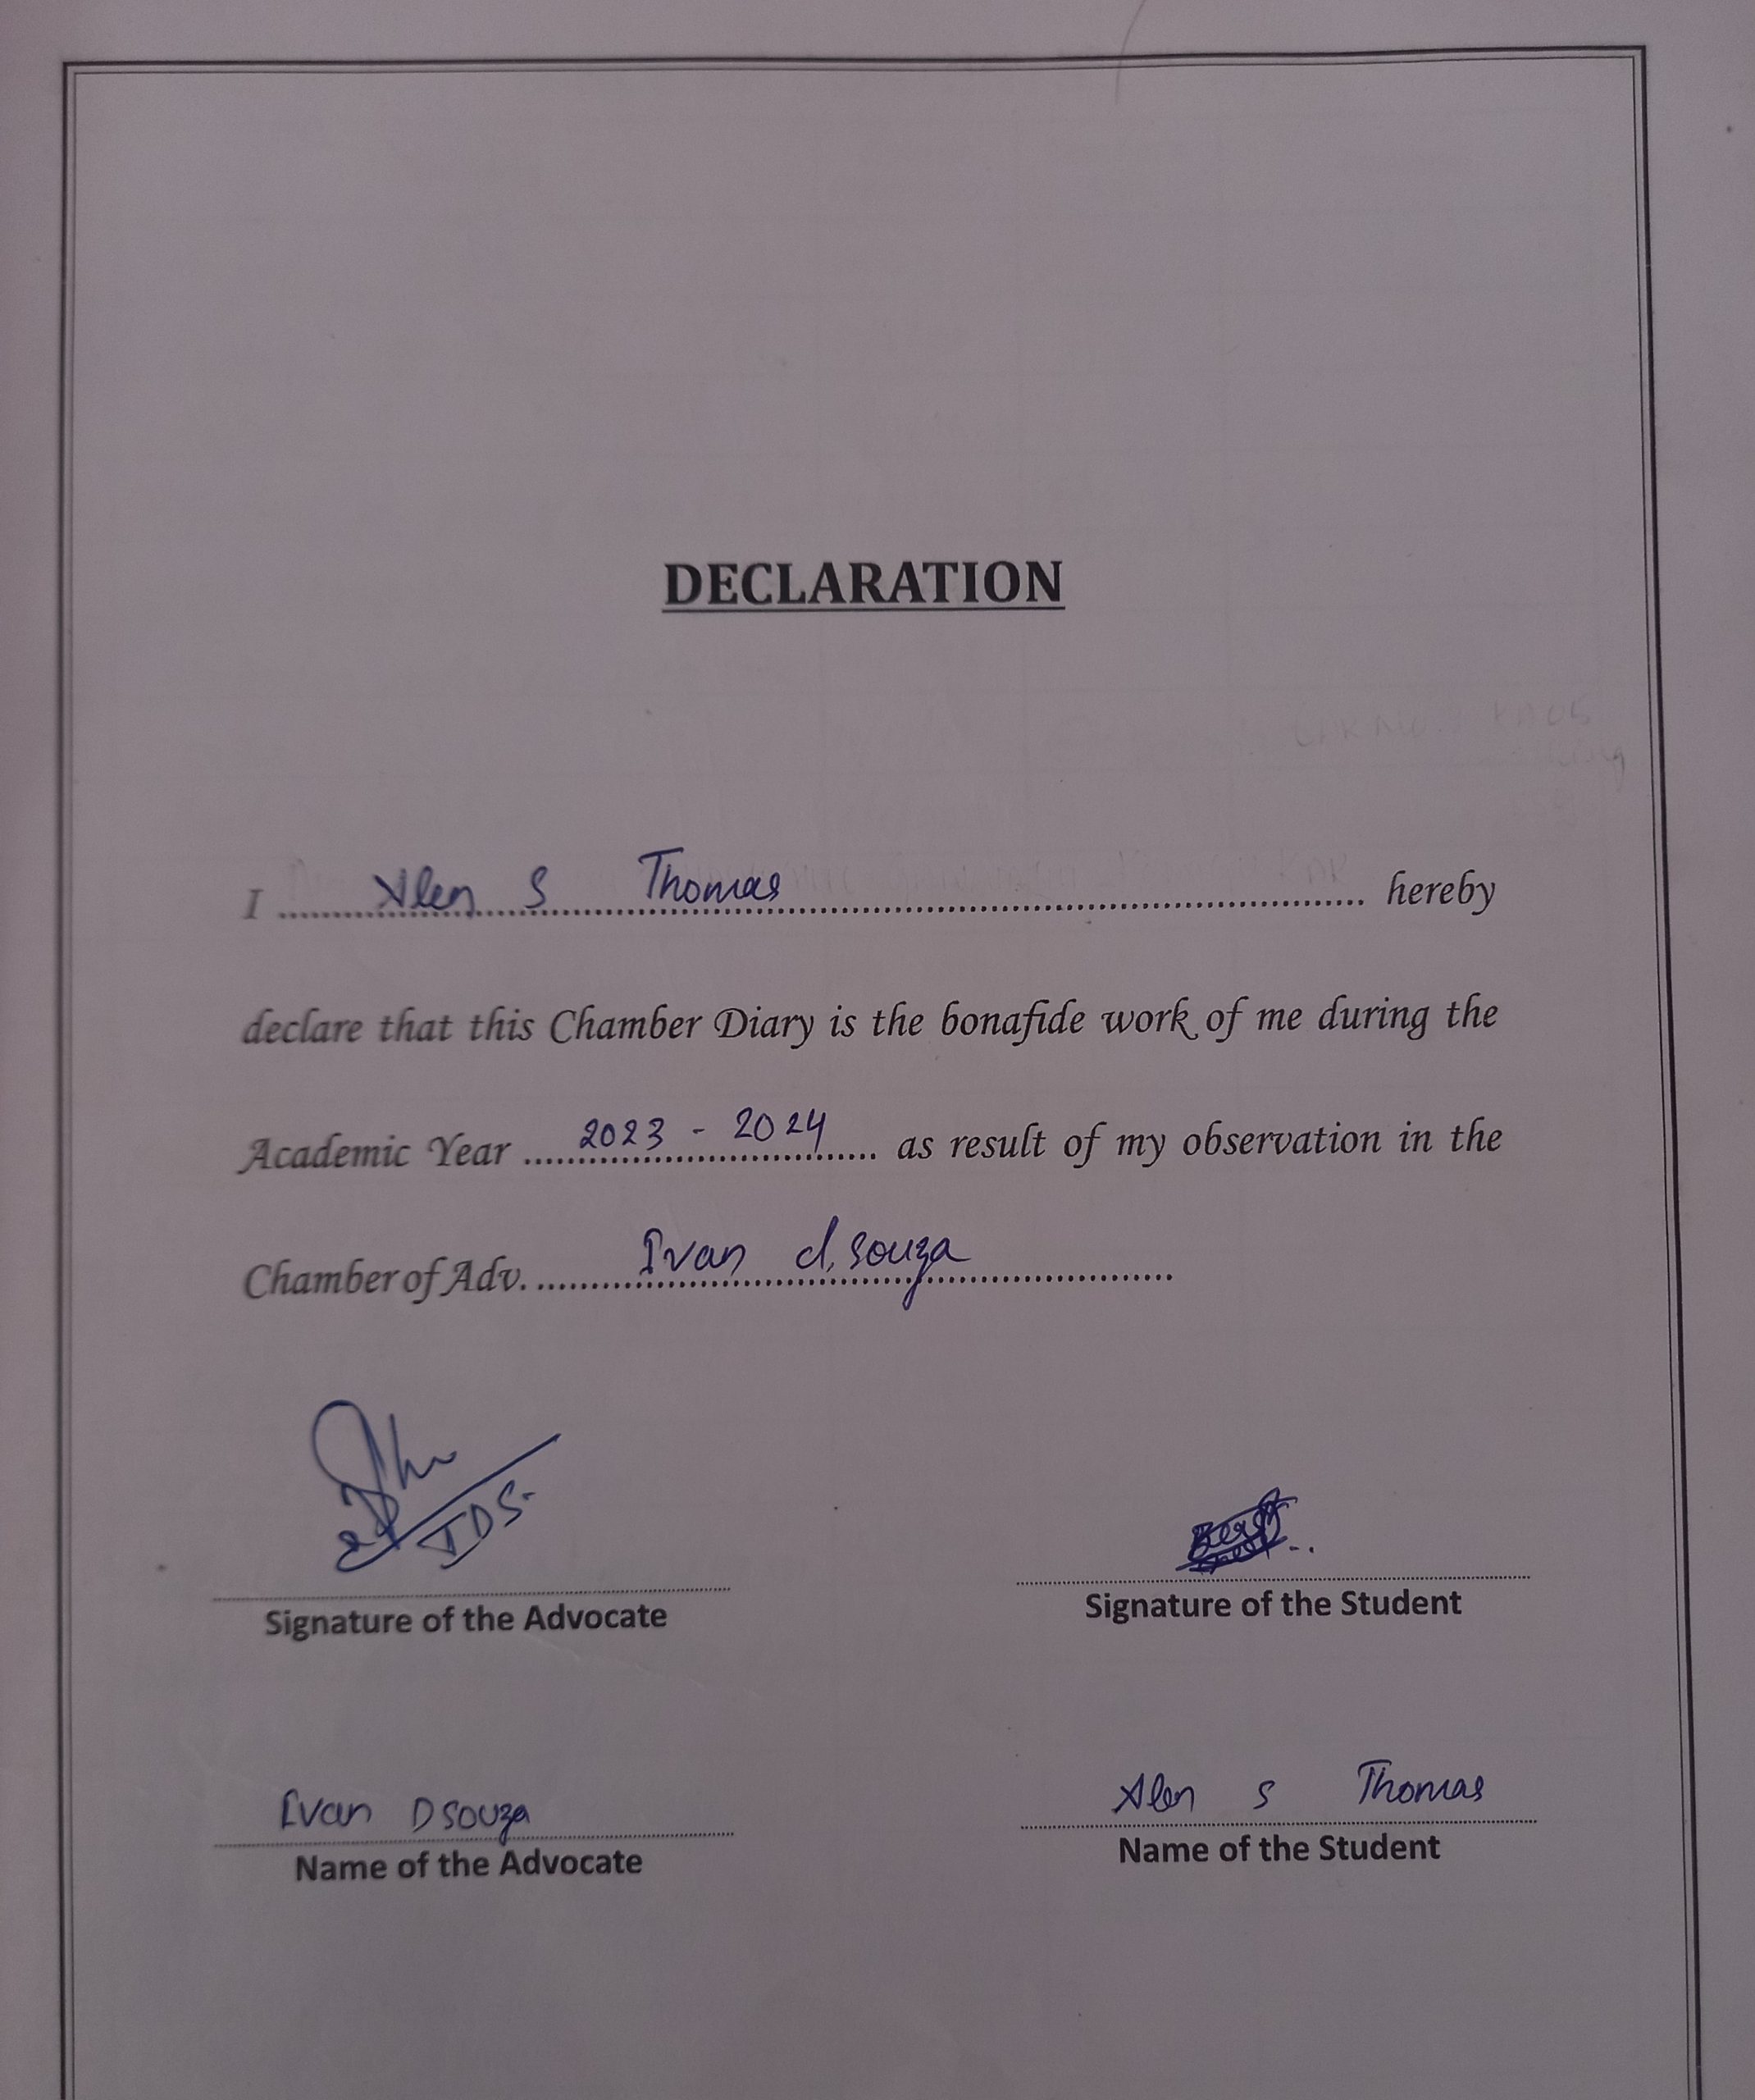 DECLARATION
I Alen S Thomas hereby
declare that this Chamber Diary is the bonafide work of me during the
Academic Year 2023 - 2024 as result of my observation in the
Chamber of Adv. Ivan d,souza
IDS
Signature of the Advocate Signature of the Student
Ivan D souza Alen S Thomas
Name of the Advocate Name of the Student